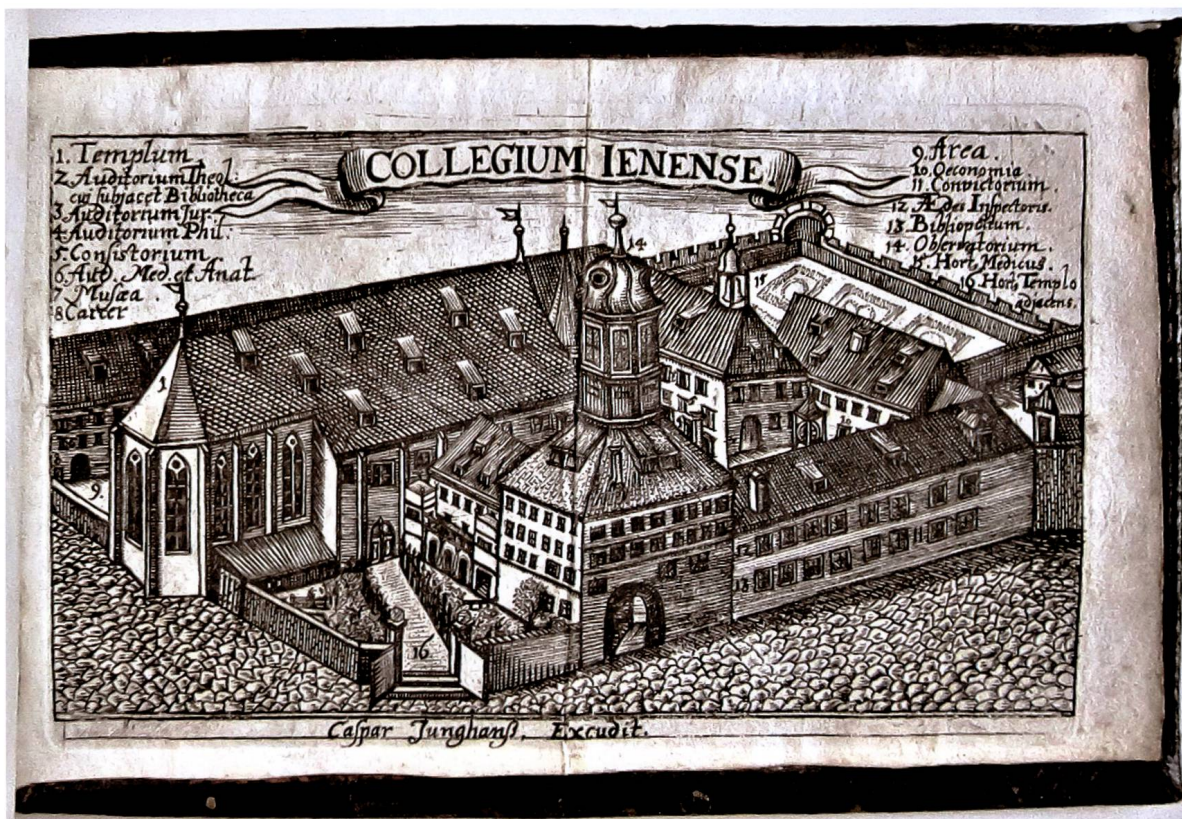 COLLEGIUM IENENSE
1. Templum
2. Auditorium Theol:
cui subjacet Bibliotheca
3. Auditorium Jur:
4. Auditorium Phil:
5. Consistorium
6. Aud. Med. et Anat
7. Musæa
8 Carcer
9. Area.
10. Oeconomia.
11. Convictorium.
12. Ædes Inspectoris.
13. Bibliopolium.
14. Observatorium.
15. Hort, Medicus.
16 Hort, Templo
adjacens.
14
15
1
10
9.
11
12
13
16
Caspar Junghanß, Excudit.